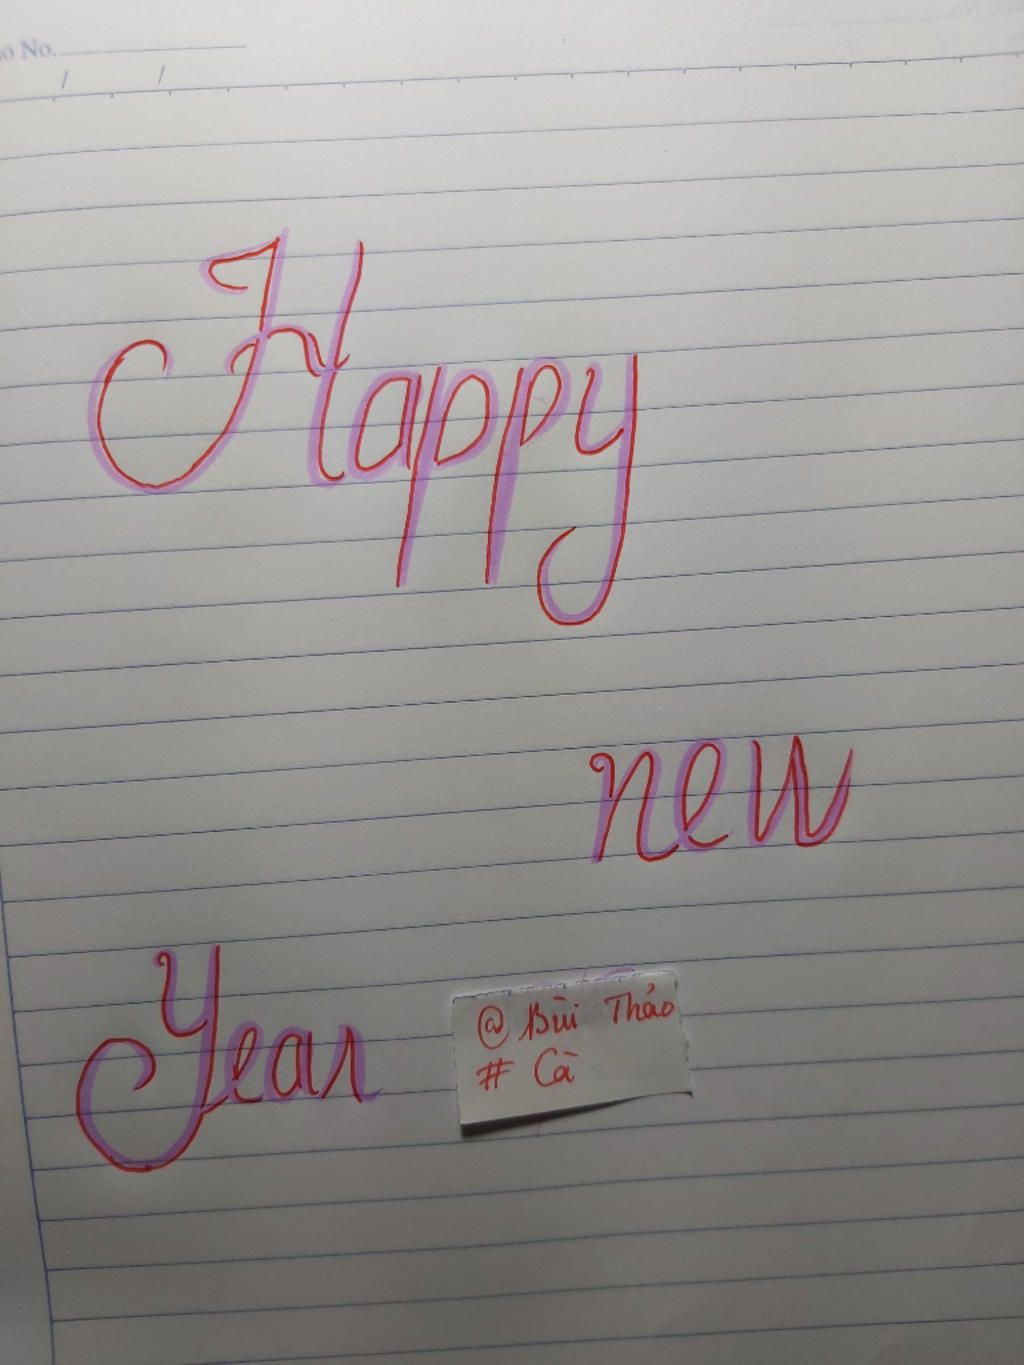 No.
/ /
Happy
new
Year
@ Bùi Thảo
# Cà